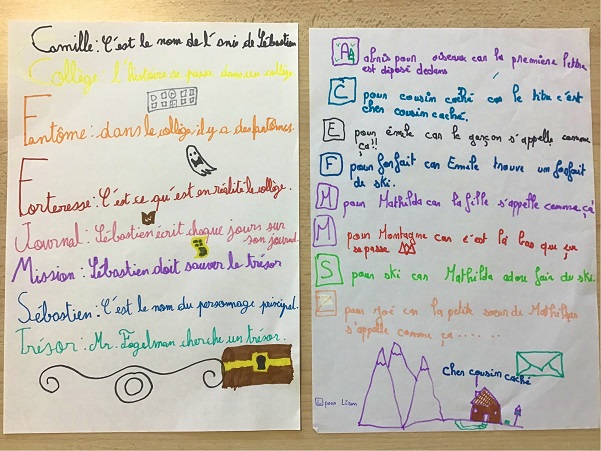 Camille: C'est le nom de l'amie de Sébastien
Collège: l'histoire se passe dans un collège
Fantôme: dans le collège il y a des fantômes.
Forteresse: C'est ce qu'est en réalité le collège.
Journal: Sébastien écrit chaque jours sur
son journal.
Mission: Sébastien doit sauver le trésor
Sébastien: C'est le nom du personnage principal.
Trésor: Mr. Fogelman cherche un trésor.
A abris pour oiseaux car la première lettre
est déposé dedans
C pour cousin caché car le titre c'est
cher cousin caché.
E pour émile car le garçon s'appelle comme
ça!!
F pour forfait car Emile trouve un forfait
de ski.
M pour Mathilda car la fille s'appelle comme ça!
M pour Montagne car c'est là bas que ça
se passe
S pour ski car Mathilda adore faire du ski.
pour Zoé car la petite soeur de Mathilda
s'appelle comme ça......
Cher cousin caché
pour Liam